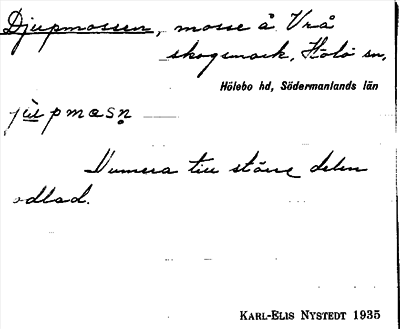 Djupmossen, mosse å Vrå
skogsmark, Hölö sn,
Hölebo hd, Södermanlands län
jùpmɷsn̥
Numera till större delen
odlad.
KARL-ELIS NYSTEDT 1935